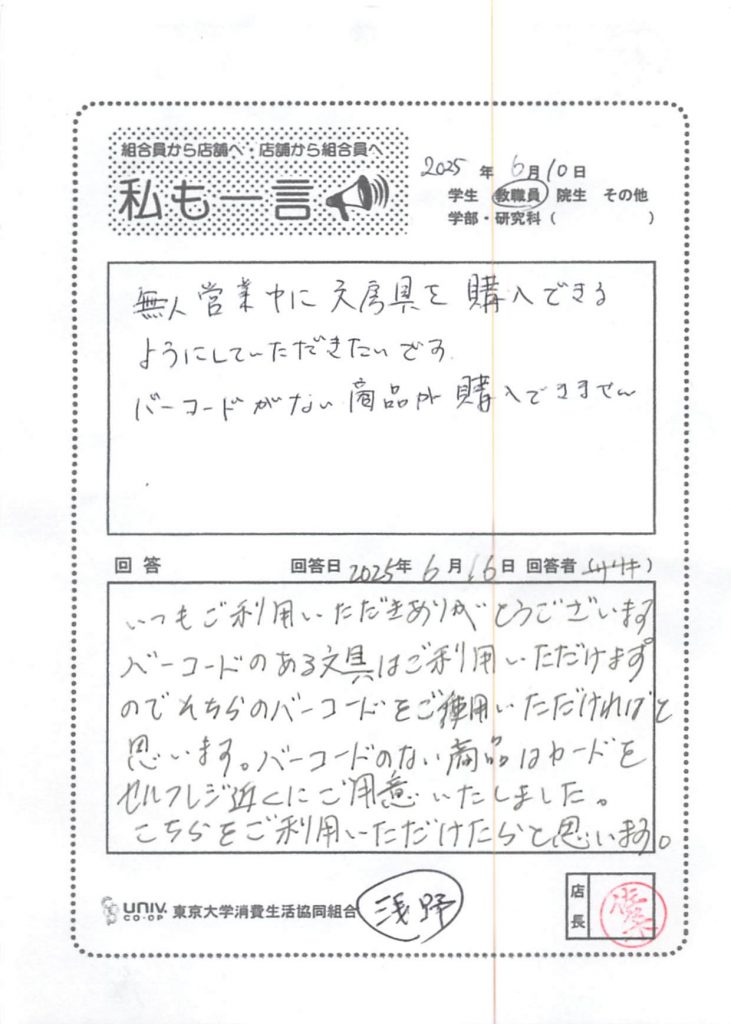 組合員から店舗へ・店舗から組合員へ
私も一言
2025年6月10日
学生 教職員 院生 その他
学部・研究科( )
無人営業中に文房具を購入できる
ようにしていただきたいです
バーコードがない商品が購入できません
回答 回答日 2025年6月16日 回答者 )
いつもご利用いただきありがとうございます
バーコードのある文具はご利用いただけます
のでそちらのバーコードをご使用いただければと
思います。バーコードのない商品はカードを
セルフレジ近くにご用意いたしました。
こちらをご利用いただけたらと思います。
UNIV. CO-OP 東京大学消費生活協同組合 浅野
店長